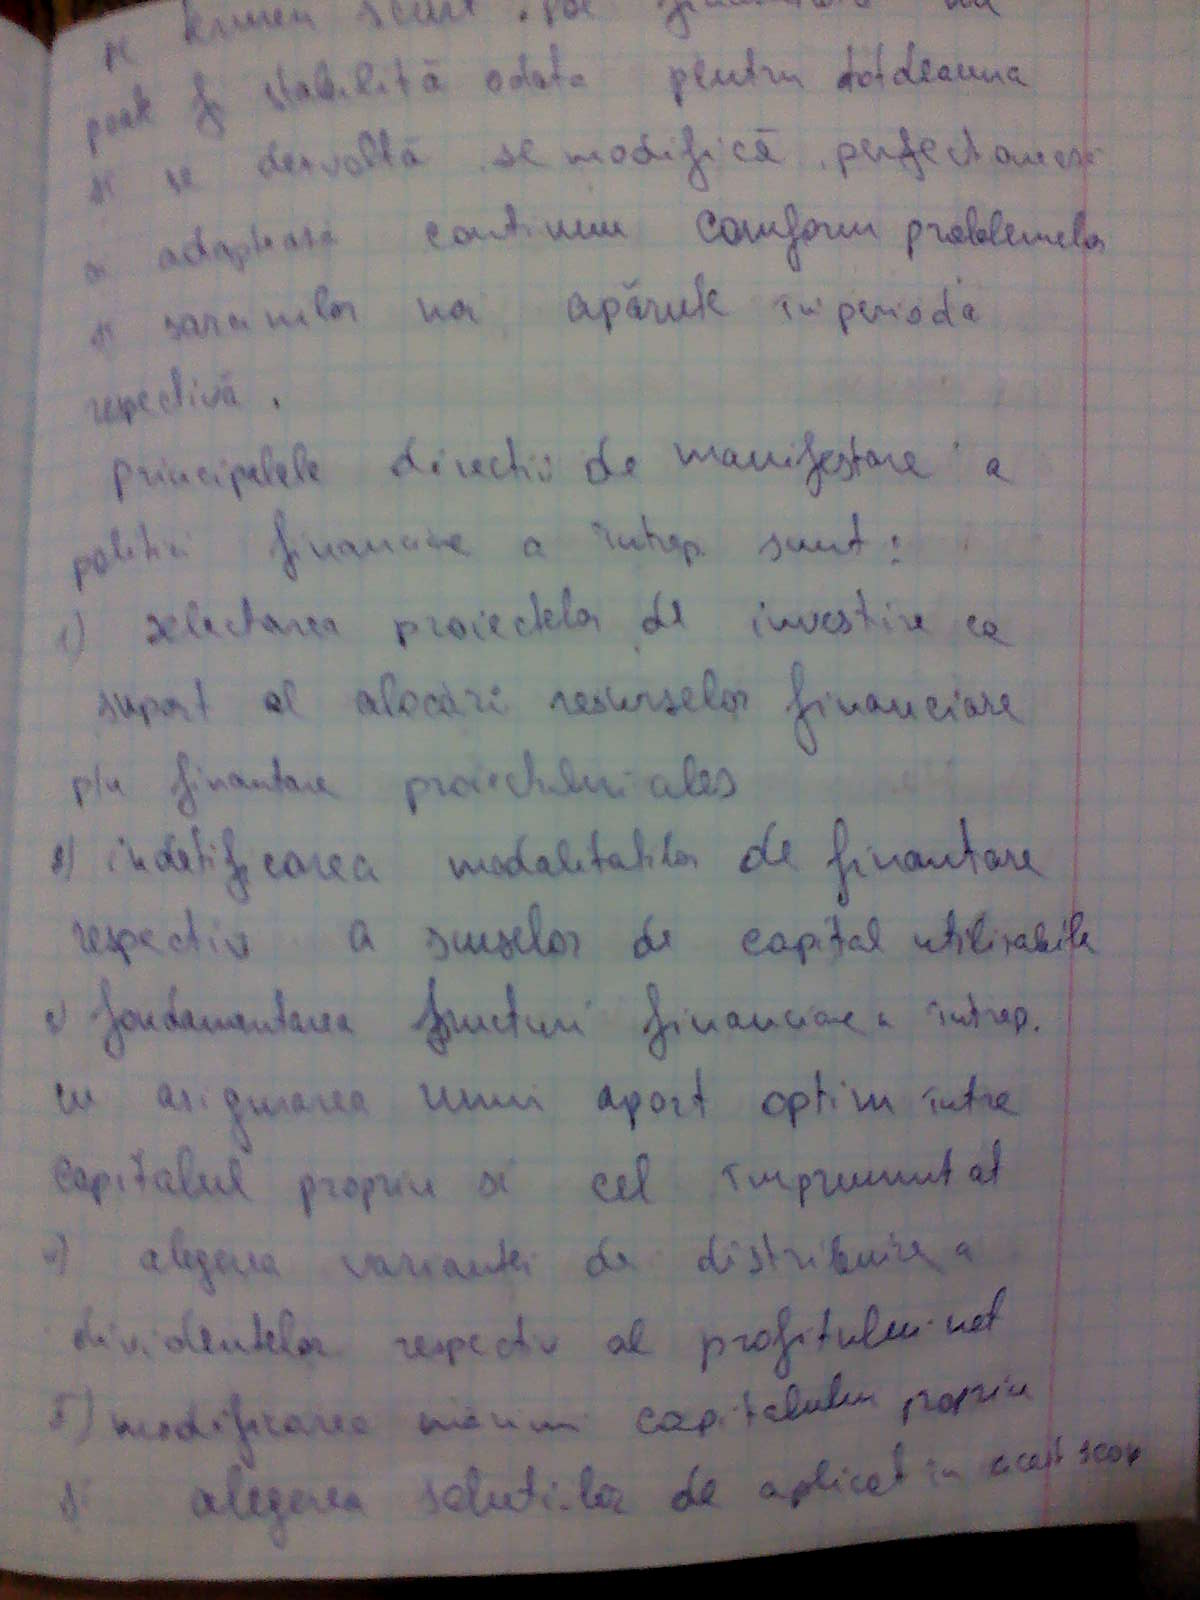 termen scurt. pol financiară nu
poate fi stabilită odata pentru totdeauna
si se dezvoltă se modifică perfectionează
si adapteaza continuu comform problemelor
si sarcinilor noi apărute în perioda
respectivă.
principalele directii de manifestare a
politici financiare a întrep sunt:
1) selectarea proiectelor de investire ca
suport al alocări resurselor financiare
p/u finantare proiectului ales
2) indetificarea modalitatilor de finantare
respectiv a surselor de capital utilizabile
fondamentarea structuri financiare a întrep.
cu asigurarea unui aport optim între
capitalul propriu si cel împrumutat
4) alegerea variantei de distribuire a
dividentelor respectiv al profitului net
5) modificarea mărimi capitalului propriu
si alegerea solutiilor de aplicat în acest scop